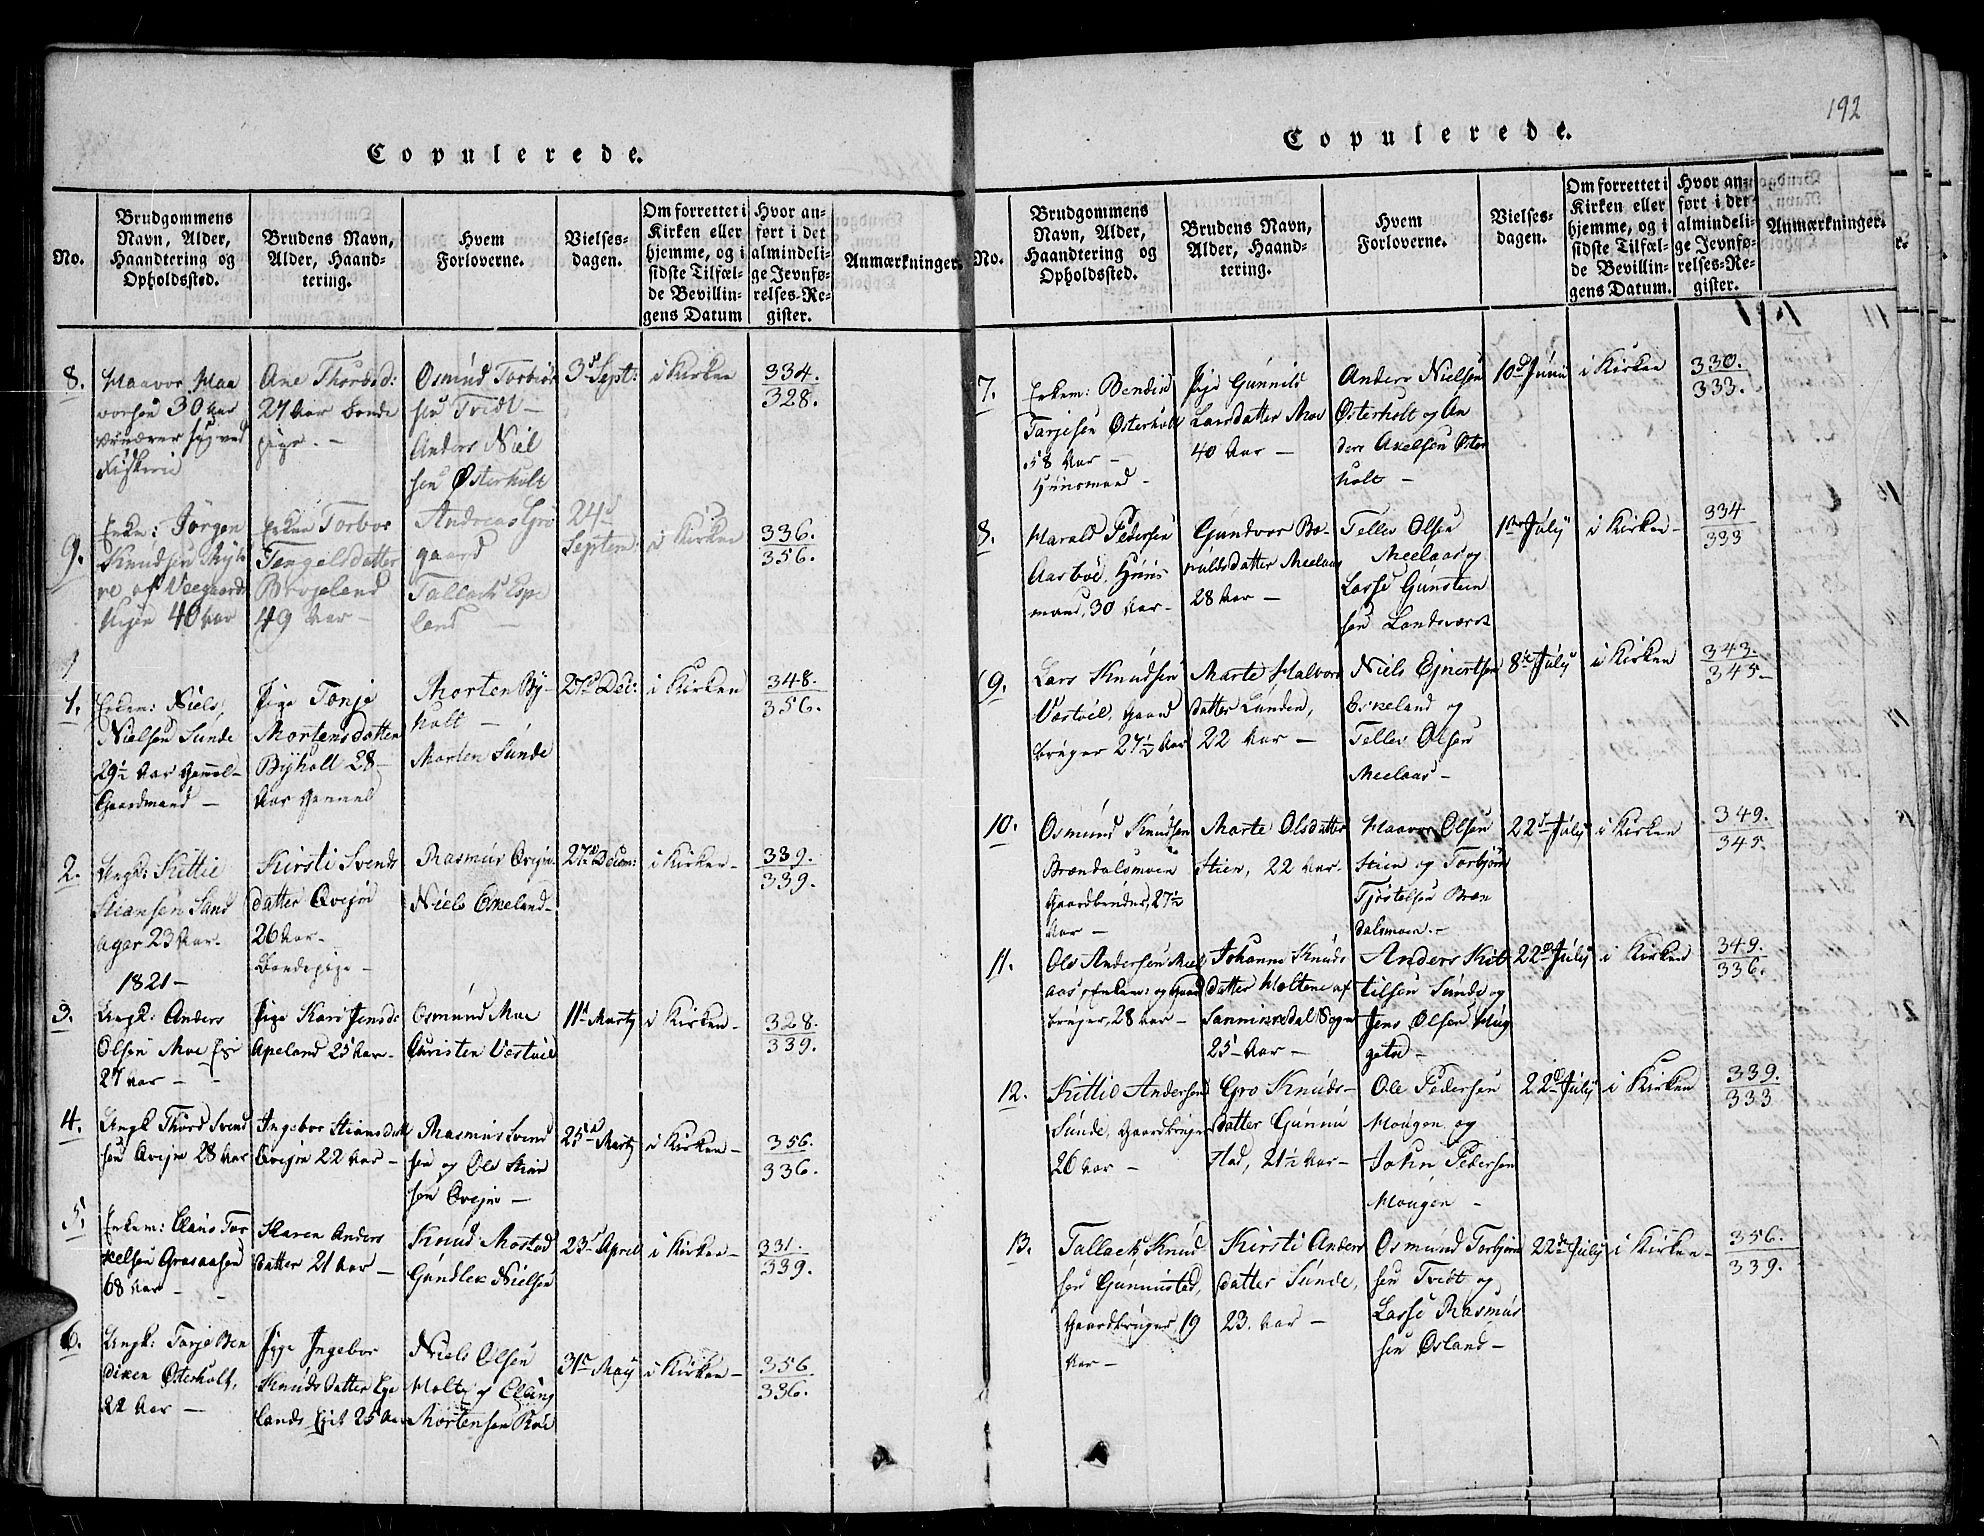 Copulerede.
No.
Brudgommens
Navn, Alder,
Haandtering og
Opholdssted.
Brudens Navn,
Alder, Haand-
tering.
Hvem
Forloverne.
Vielses-
dagen.
Om forrettet i
Kirken eller
hjemme, og i
sidste Tilfæl-
de Bevillin-
gens Datum
Hvor an-
ført i det
almindeli-
ge Jevnfø-
relses-Re-
gister.
Anmærkninger.
8.
Haavor Haa
vorsen 30 Aar
ernærer sig ved
Fiskerie
Ane Thorbed:
27 Aar Bonde
pige. -
Osmund Torbiøn
sen Tvedt -
Anders Niel
sen Østerholt
3d Sept:
i Kirken
334.
328.
9.
Enkem: Jørgen
Knudsen
40 Aar
Enken Torbor
Tengelsdatter
49 Aar -
Andreas Gro
gaard
Tallach Espe
land -
24d
Septem:
i Kirken
336.
356.
1.
Enkem: Niels
Nielsen Sunde
29½ Aar Gammel -
Gaardmand -
Pige Tonje
Mortensdatter
Byholt 28 -
Aar Gammel
Morten By-
holt -
Morten Sunde
27d Dec:
i Kirken
348.
356.
2.
Ungk: Kittil
Stiansen Sand
ager 23 Aar.
Kirsti Svends
datter Qvejn
26 Aar -
Bondepige -
Rasmus Qvejn
Niels Eskeland -
27de Decem:
i Kirken -
339.
339.
1821 -
3.
Ungk: Anders
Olsen Moe
27 Aar -
Pige Kari Jensd:
Apeland 25 Aar -
Osmund Moe
Christen Væstøel
11d Martz
i Kirken -
328.
339.
4.
Ungk Thord Svend
sen Qvejn 28 Aar
Ingebor Stiansdatt
Qvejn 22 Aar -
Rasmus Svend
sen og Ole Stian
sen Qvejn -
25d Martz
i Kirken -
356.
336.
5.
Enkem: Claus Tor
kelsen Graaasen
68 Aar -
Karen Anders
datter 21 Aar -
Knud Mostad
Gundlek Nielsen
23d April
i Kirken -
331.
339.
6.
Ungk: Tarje Ben
dixen Østerholt,
22 Aar -
Pige Ingebor
Knudsdatter Ege
lands Ejet 25 Aar
Niels Olsen
Holte og Elling
Mortensen Røe
31te Maij
i Kirken -
356
336.
192
Copulerede.
No.
Brudgommens
Navn, Alder,
Haandtering og
Opholdssted.
Brudens Navn,
Alder, Haand-
tering.
Hvem
Forloverne.
Vielses-
dagen.
Om forrettet i
Kirken eller
hjemme, og i
sidste Tilfæl-
de Bevillin-
gens Datum.
Hvor an-
ført i det
almindeli-
ge Jevnfø-
relses-Re-
gister.
Anmærkninger.
7.
Enkem: Bendix
Tarjesen Østerholt
58 Aar -
Huusmand -
Pige Gunnild
Larsdatter Moe
40 Aar -
Anders Nielsen
Østerholt og An
ders Axelsen Øster
holt -
10d Junii
i Kirken
330.
333.
8.
Harald Pedersen
Aasbøe, Huus
mand, 30 Aar -
Gundvor Ro-
nuldsdatter Meelaas
28 Aar -
Tellev Olsen
Meelaas og
Lasse Gunstein
sen Landsværk
1ste July
i Kirken -
334
333
9.
Lars Knudsen
Væstøel, Gaard
bruger 27½ Aar
Marte Halvors
datter Lunden,
22 Aar -
Niels Ejvertsen
Eskeland og
Tellev Olsen
Meelaas -
8de July
i Kirken
343.
345 -
10.
Osmund Knudsen
Brændalsmoen
Gaardbruder, 27½
Aar -
Marte Olsdatter
Stien, 22 Aar.
Haavor Olsen
Stien og Torbjørn
Tjøstelsen Bræn
dalsmoen. -
22d July
i Kirken
349.
345.
11.
Ole Andersen Meel
aas, Enkem: og Gaard
bruger, 28 Aar -
Johanne Knuds
datter Holtene af
Sannikedal Sogn
25 - Aar -
Anders Kit
tilsen Sunde og
Jens Olsen
22de July
i Kirken
349.
336.
12.
Kittil Andersen
Sunde, Gaardbruger
26 Aar -
Gro Knuds-
datter Gunnu
stad, 21½ Aar -
Ole Pedersen
Hougen og
John Pedersen
Hougen -
22de July
i Kirken
339.
333
13.
Tallach Knud
sen Gunnustad,
Gaardbruger, 19
Aar -
Kirsti Anders
datter Sunde,
23. Aar -
Osmund Torbjørn
sen Tvedt og
Lasse Rasmus
sen Øsland -
22de July
i Kirken -
356.
339.